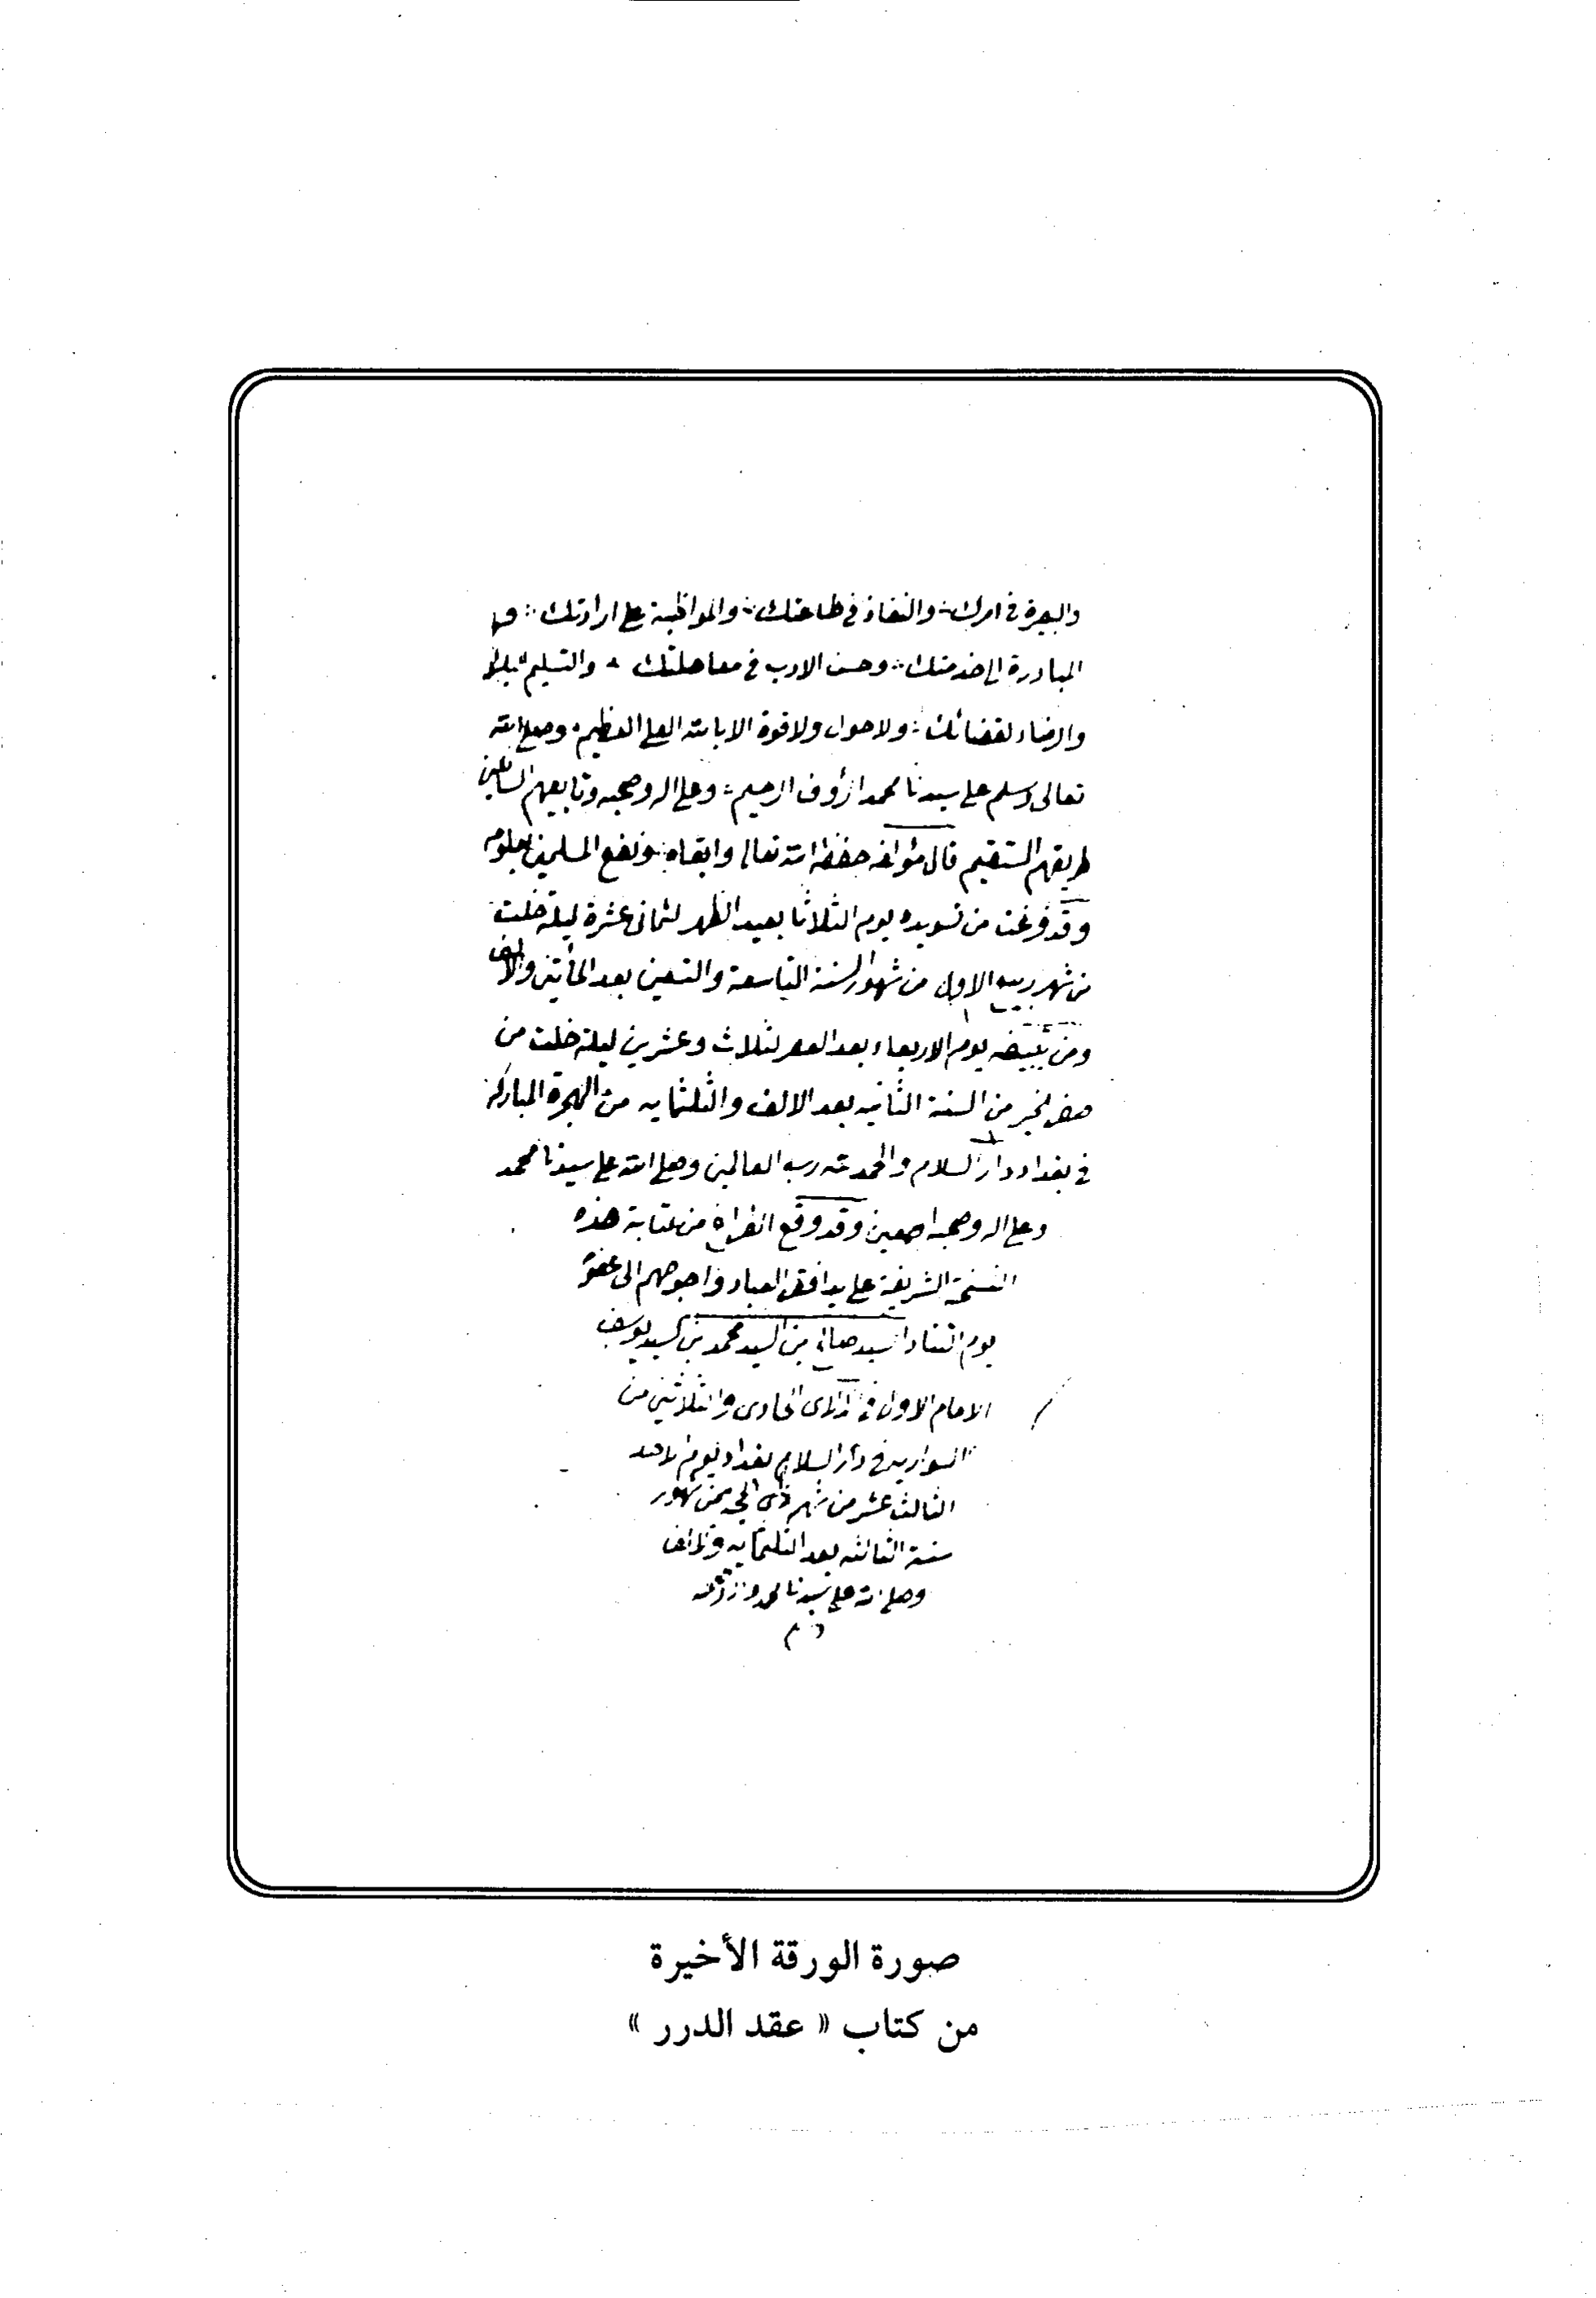 والبصيرة في امرك والنفاذ في طاعتك والمواظبة على ارادتك
المبادرة الى خدمتك وحسن الادب في معاملتك والتسليم اليك
والرضاء بقضائك ولا حول ولا قوة الا بالله العلي العظيم وصلى الله
تعالى وسلم على سيدنا محمد الرؤف الرحيم وعلى اله وصحبه وتابعيهم السالكين
طريقهم المستقيم قال مؤلفه حفظه الله تعالى وابقاه ونفع المسلمين بعلومه
وقد فرغت من تسويده يوم الثلاثا بعيد الظهر لثماني عشرة ليلة خلت
من شهر ربيع الاول من شهور السنة التاسعة والتسعين بعد المأتين والالف
ومن تبييضه يوم الاربعاء بعد العصر لثلاث وعشرين ليلة خلت من
صفر الخير من السنة الثانيه بعد الالف والثلثمايه من الهجرة المباركة
في بغداد دار السلام والحمد لله رب العالمين وصلى الله على سيدنا محمد
وعلى اله وصحبه اجمعين وقد وقع الفراغ من كتابة هذه
النسخة الشريفة على يد افقر العباد واحوجهم الى عفوه
يوم التناد السيد صالح بن السيد محمد بن السيد يوسف
الامام الاول في الاى الحادى والثلاثين من
السواريه في دار السلام بغداد يوم الاحد
الثالث عشر من شهر ذى الحجة من شهور
سنة الثالثه بعد الثلثمايه والالف
وصلى الله على سيدنا محمد
م
صورة الورقة الأخيرة
من كتاب « عقد الدرر »